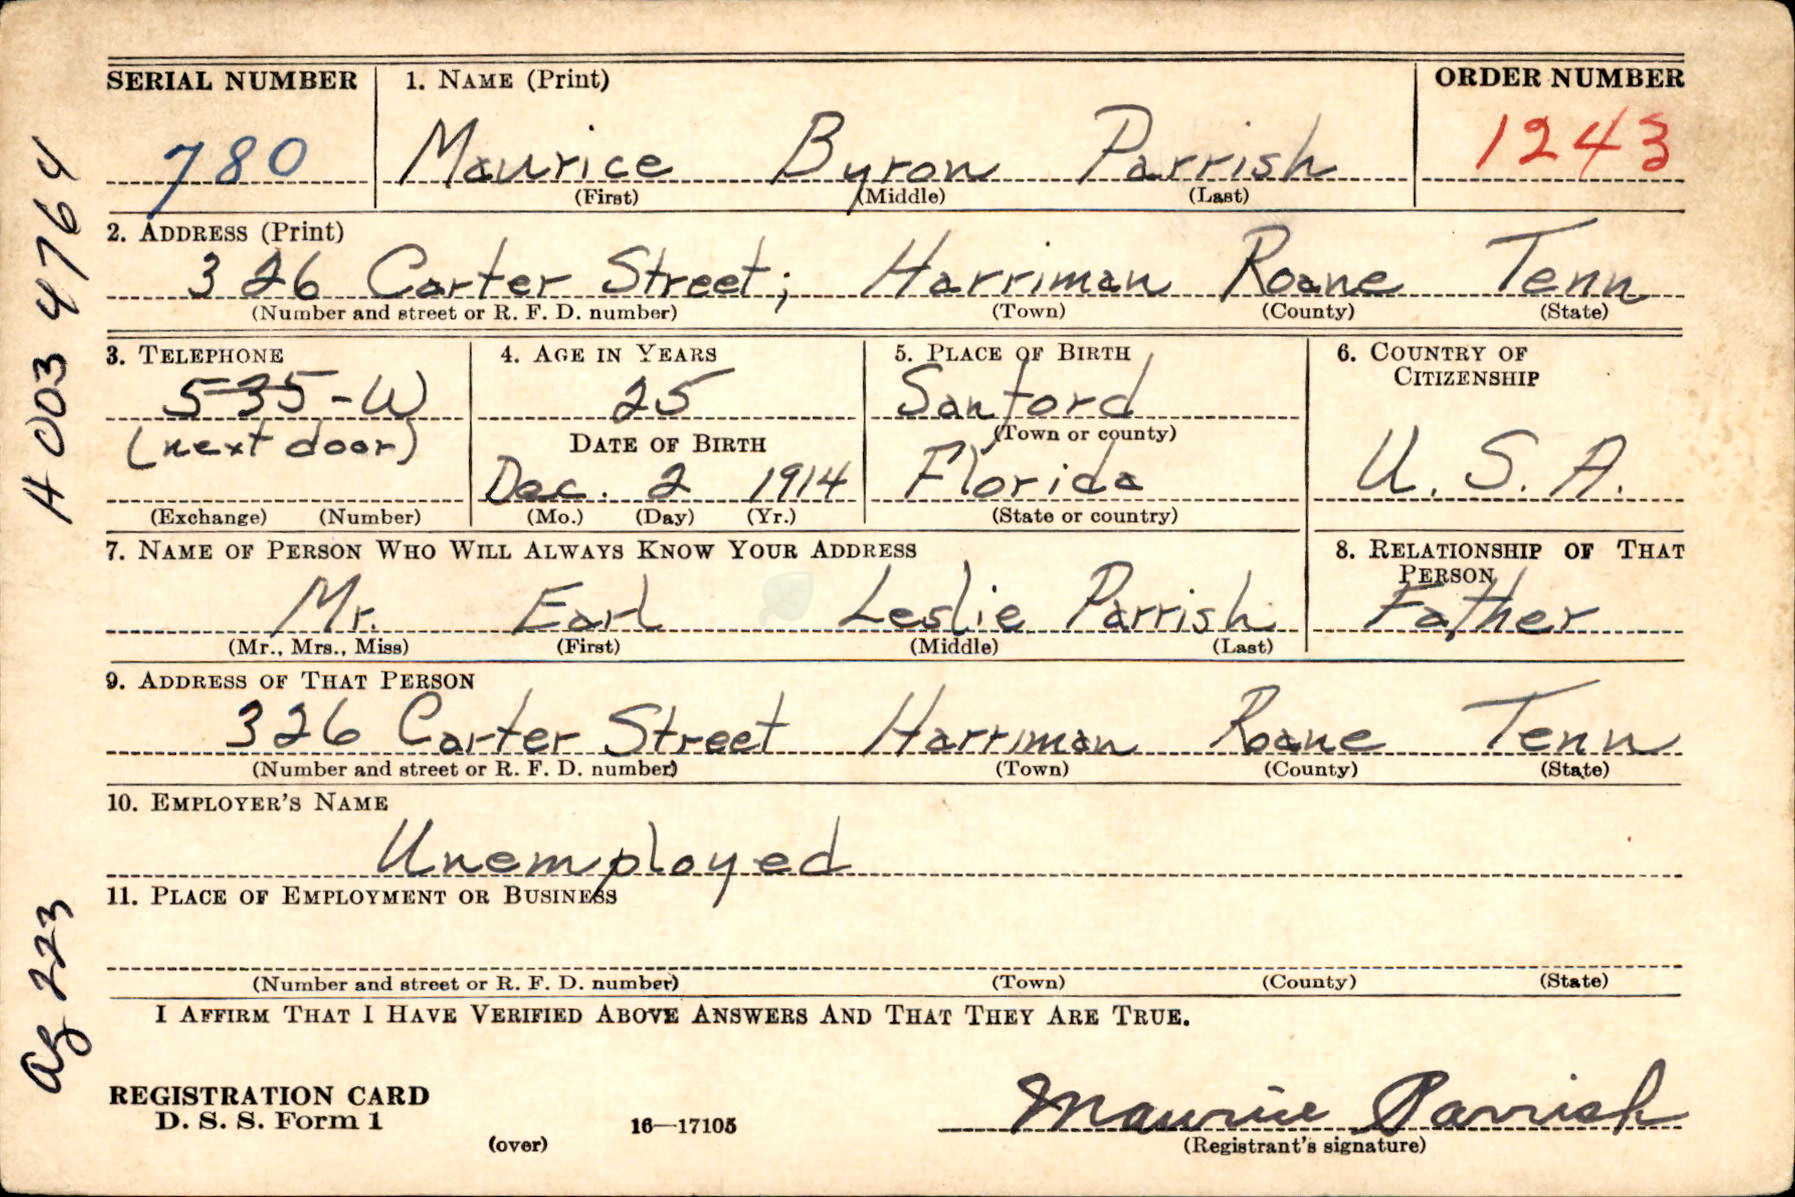 SERIAL NUMBER 1. NAME (Print) ORDER NUMBER
780 Maurice Byron Parrish 1243
(First) (Middle) (Last)
2. ADDRESS (Print)
326 Carter Street; Harriman Roane Tenn
(Number and street or R. F. D. number) (Town) (County) (State)
3. TELEPHONE 4. AGE IN YEARS 5. PLACE OF BIRTH 6. COUNTRY OF CITIZENSHIP
535-W 25 Sanford
(Town or county)
(next door) DATE OF BIRTH
Dec. 2 1914 Florida U. S. A.
(Exchange) (Number) (Mo.) (Day) (Yr.) (State or country)
7. NAME OF PERSON WHO WILL ALWAYS KNOW YOUR ADDRESS 8. RELATIONSHIP OF THAT PERSON
Mr. Earl Leslie Parrish Father
(Mr., Mrs., Miss) (First) (Middle) (Last)
9. ADDRESS OF THAT PERSON
326 Carter Street Harriman Roane Tenn
(Number and street or R. F. D. number) (Town) (County) (State)
10. EMPLOYER'S NAME
Unemployed
11. PLACE OF EMPLOYMENT OR BUSINESS
(Number and street or R. F. D. number) (Town) (County) (State)
I AFFIRM THAT I HAVE VERIFIED ABOVE ANSWERS AND THAT THEY ARE TRUE.
REGISTRATION CARD
D. S. S. Form 1 16—17105 Maurice Parrish
(over) (Registrant's signature)
H 003 4764
223